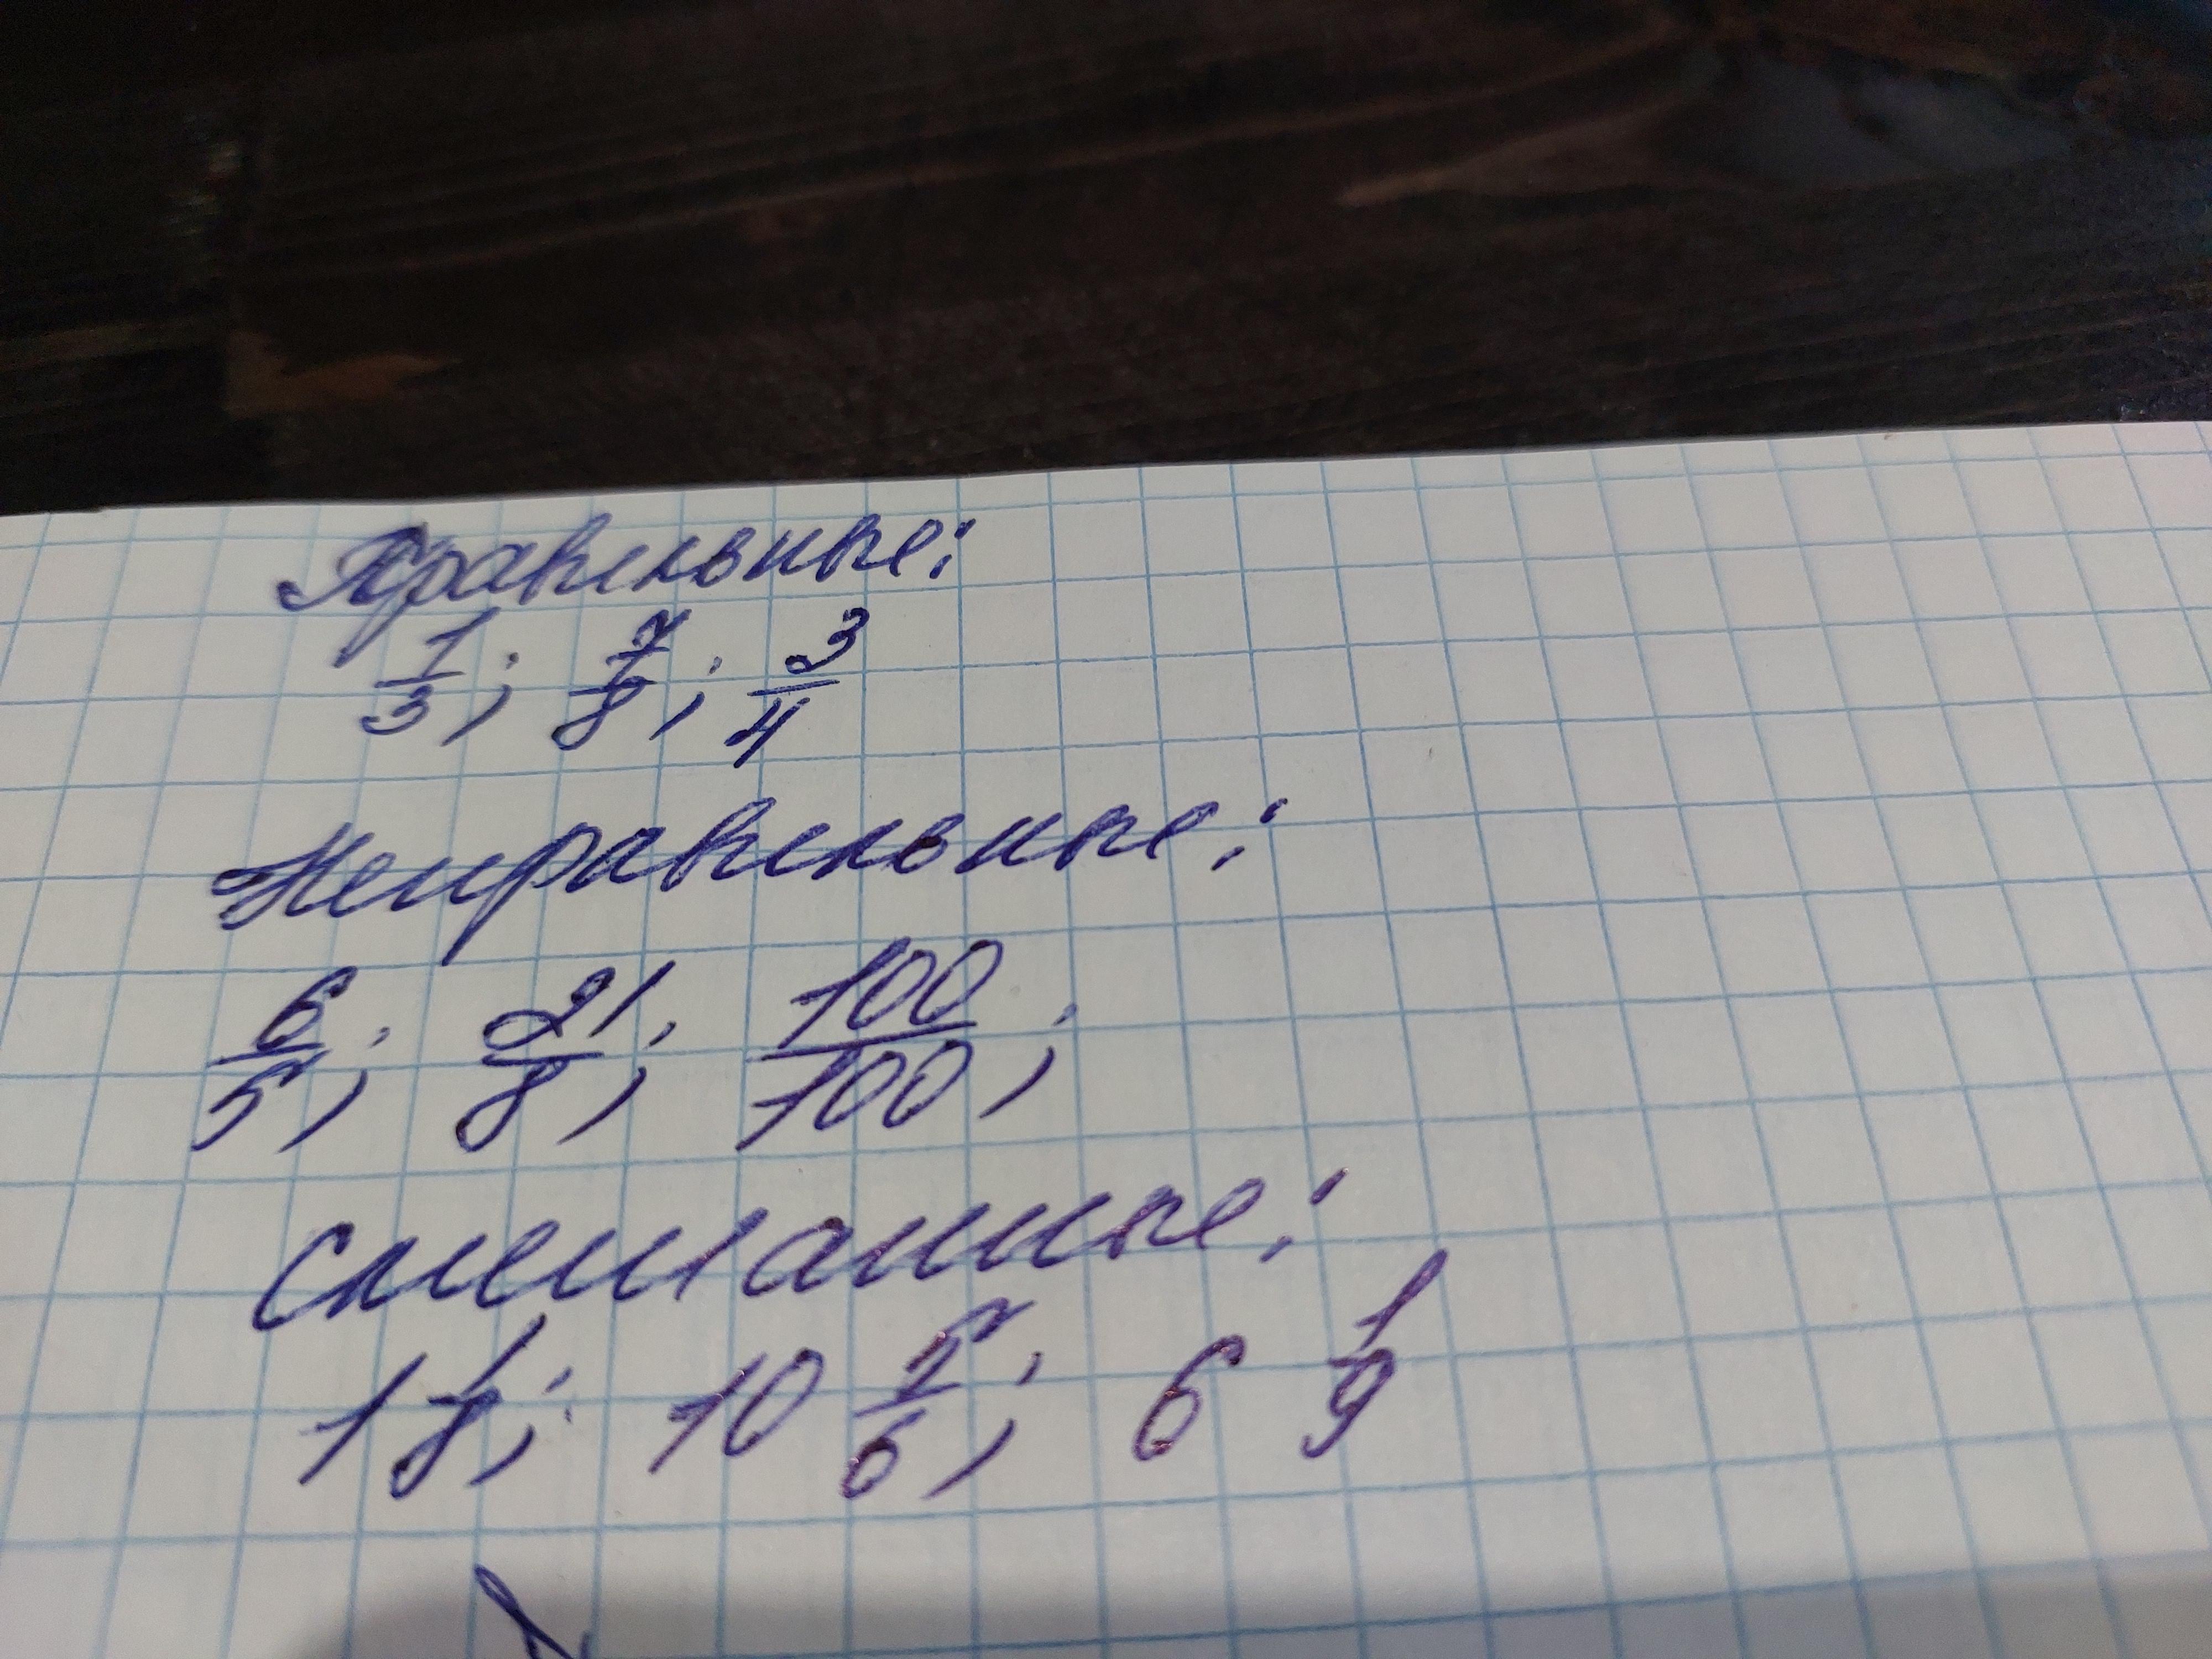 Правильные:
1/3; 7/8; 3/4
Неправильные:
6/5; 21/8; 100/100;
Смешанные:
1 1/8; 10 5/6; 6 1/9